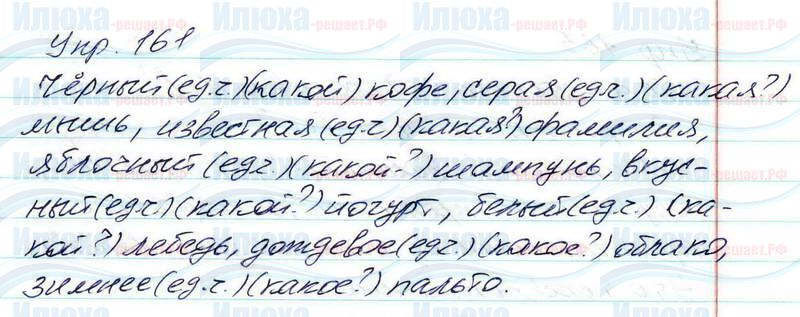 Упр. 161
Чёрный (ед.ч.) (какой) кофе, серая (ед.ч.) (какая?)
мышь, известная (ед.ч) (какая?) фамилия,
яблочный (ед.ч.) (какой?) шампунь, вкус-
ный (ед.ч) (какой?) йогурт, белый (ед.ч.) (ка-
кой?) лебедь, дождевое (ед.ч.) (какое?) облако,
зимнее (ед.ч.) (какое?) пальто.